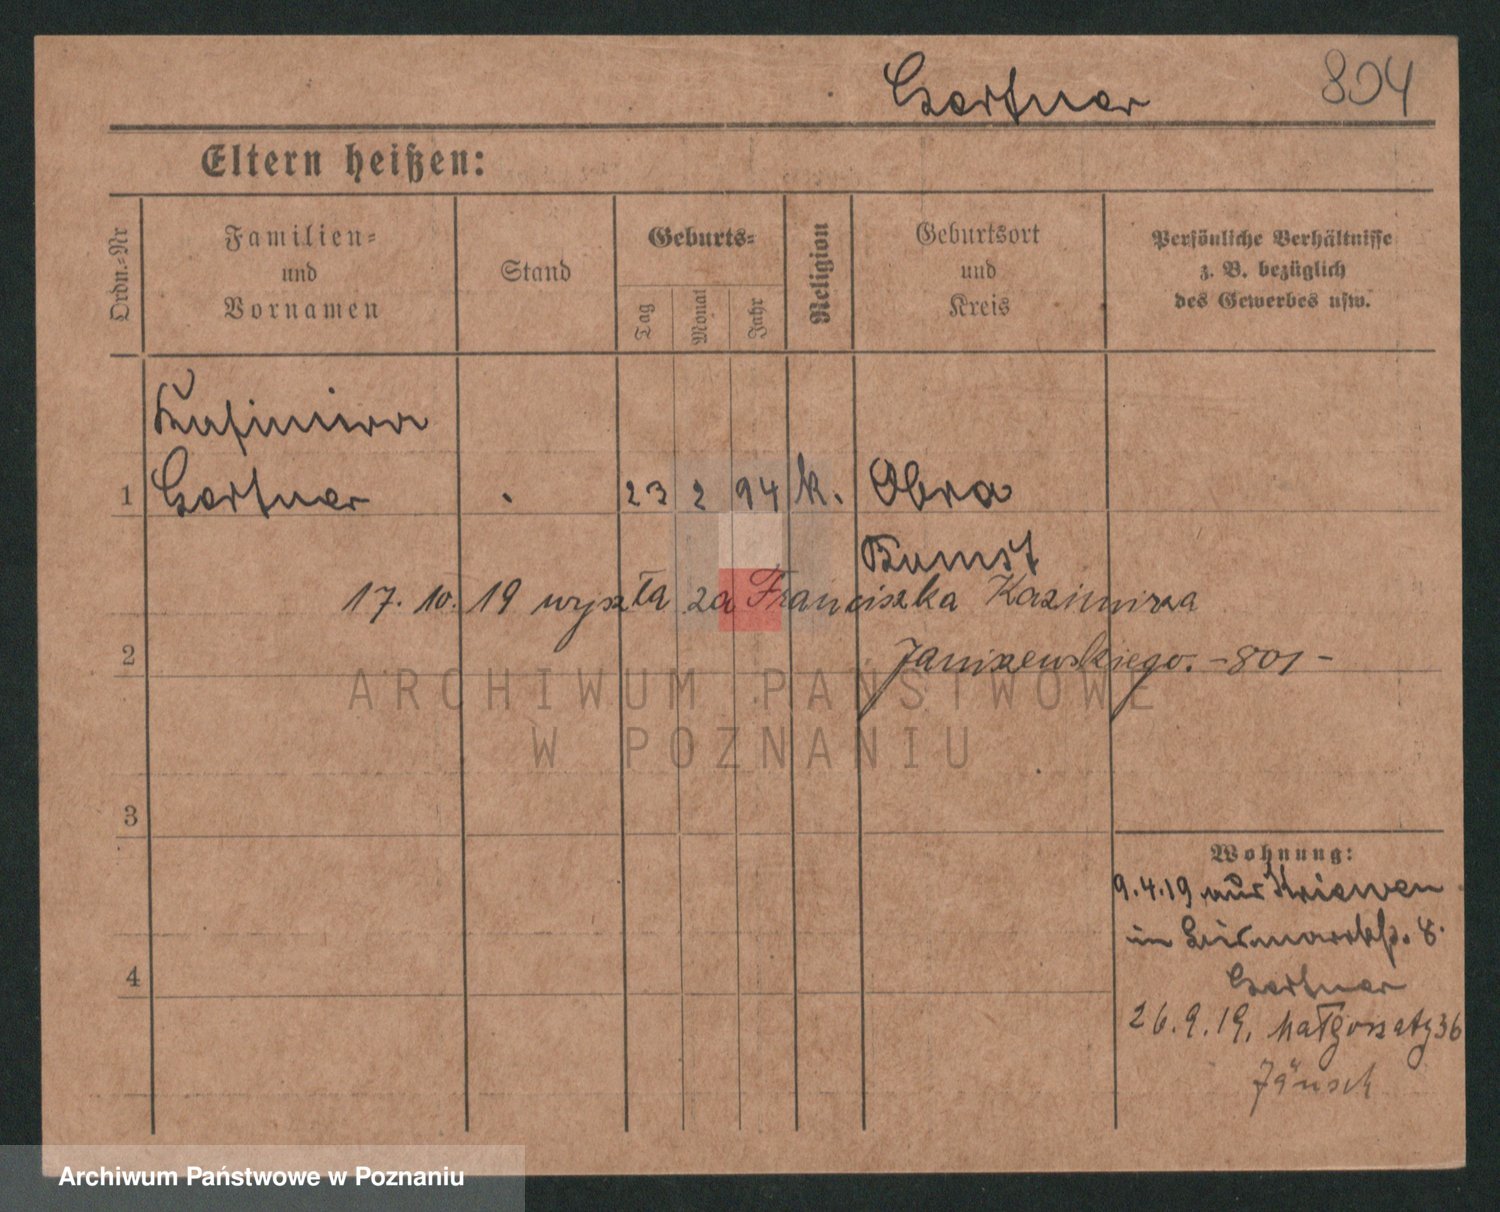 Gertner 804
Eltern heißen:
Ordn.-Nr
Familien-
und
Vornamen
Stand
Geburts-
Tag
Monat
Jahr
Religion
Geburtsort
und
Kreis
Persönliche Verhältnisse
z. B. bezüglich
des Gewerbes usw.
Kasimira
1 Gertner 23 2 94 k. Obra
Bomst
17. 10. 19 wyszła za Franciszka Kazimirza
2 Janiszewskiego. -801-
3
Wohnung:
9.4.19 aus Kriewen
in Bismarckstr. 8.
4
Gertner
26.9.19. Małgorzaty 36
Jänsch
ARCHIWUM PAŃSTWOWE
W POZNANIU
Archiwum Państwowe w Poznaniu